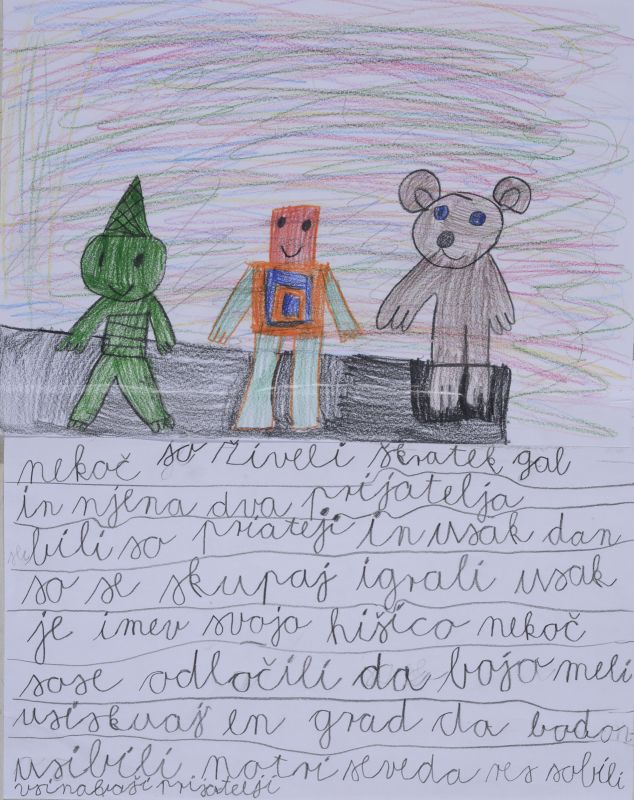 nekoč so živeli skratek gal
in njena dva prijatelja
bili so priateji in usak dan
so se skupaj igrali usak
je imev svojo hišico nekoč
sose odločili da bojo meli
usiskuaj en grad da bodo
usibili notri seveda res sobili
vsinabaši prisatelji